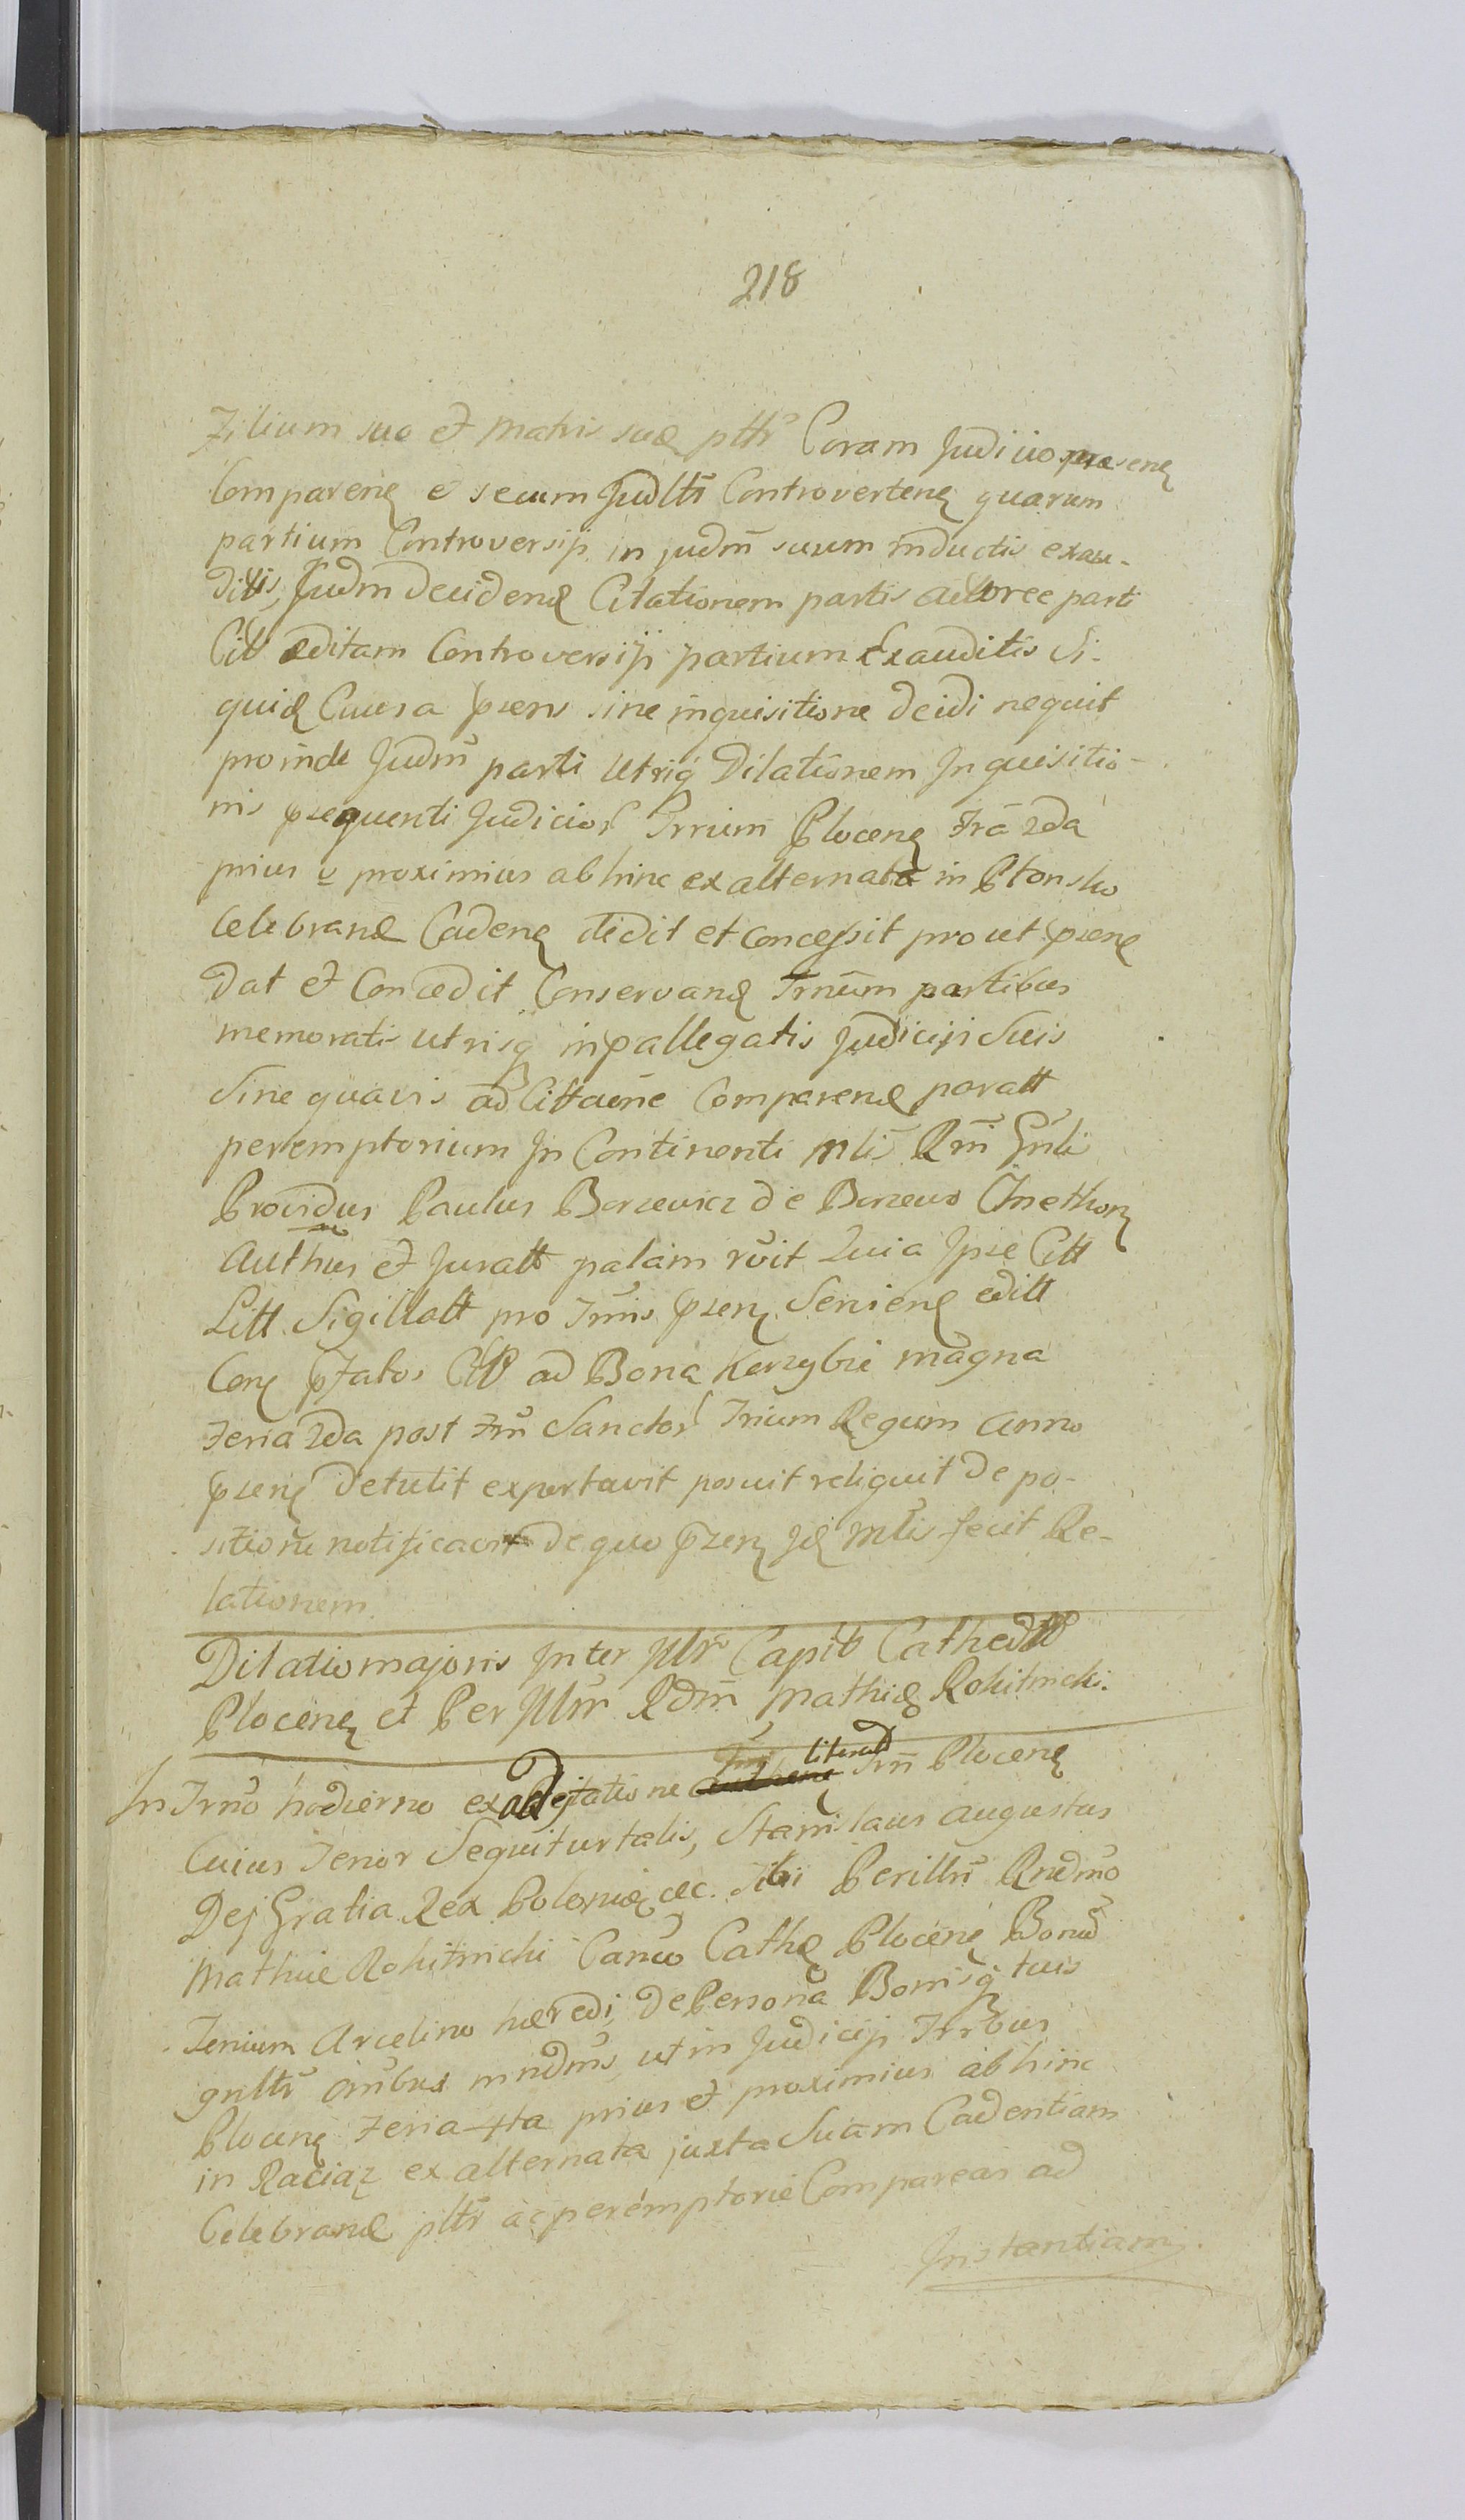 218
Filium suo et Matris suæ ptti Coram Judicio præsenę
Comparenę et secum Judltī Controvertenę quarum
partium Controversij in judm̄ suum inductis exau-
ditis, Judm̄ decidend Citationem partis actoreæ parti
Citt æditam Controversij partium Exauditis Si-
quid Causa psens sine inquisitione decidi nequit
proinde Judm̄ parti Utriq Dilationem Inquisitio-
nis psequenti Judicior Trrium Plocenę Fra 2da
prius et proximius abhinc ex alternata in Płonsko
Celebrand Cadenę dedit et Concessit prout psenę
Dat et Concedit Conservand Trnum partibus
memoratis utrisq in pallegatis Judicijs Suis
Sine quavis adCittaōne Comparend paratt
peremptorium In Continenti Mlis Rm̄ Gnli
Providus Paulus Borzewicz de Borzewo Chmethon
Authus et Juratt palam rūit Quia Ipse Citt
Litt Sigillatt pro Trnis psenę Servienę editt
Conę pfatos Citt ad Bona Karzybie magna
Feria 2da post Fm̄ Sanctor Trium Regum Anno
psenę detulit exportavit posuit reliquit de po-
sitione notificavit de quo psenę Jd Mlis fecit Re-
lationem
Dilatio majoris Inter Illr Capitt Cathedtt
Plocenę et PerIllm̄ Rdm̄ Mathiæ Rokitnicki.
In Trno hodierno ex adcitatione Trrj literatt Trn Plocenę
Cuius Tenor Sequitur talis, Stanislaus Augustus
Dej Gratia Rex Poloniæ, etc. Tibi Perillri Rndm̄o
Mathiæ Rokitnicki Canco Cathę Plocenę Bonor
Tenium Arcelino hæredi, de Persona Bonisq tuis
gnltr ōmbus mndms, ut in Judicijs Trrbus
Plocenę Feria 4ta prius et proximius abhinc
in Raciąz ex alternata juxta Suam Cadentiam
Celebrand pltr ac peremptorie Compareas ad
Instantiam